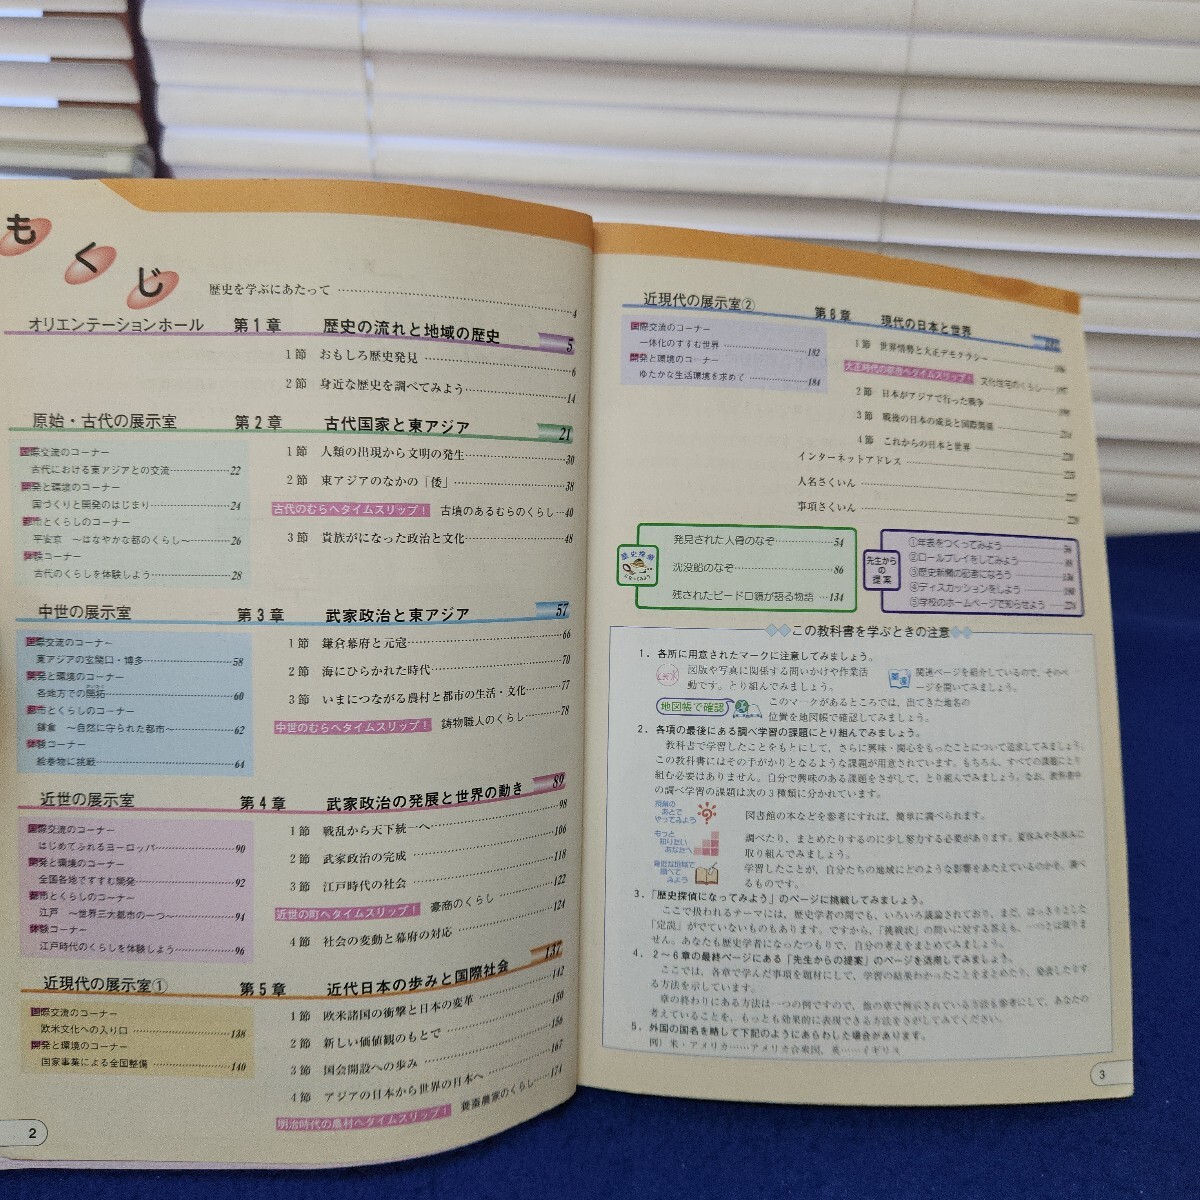 もくじ
歴史を学ぶにあたって 4
オリエンテーションホール 第1章 歴史の流れと地域の歴史 5
1節 おもしろ歴史発見 6
2節 身近な歴史を調べてみよう 14
原始・古代の展示室 第2章 古代国家と東アジア 21
国際交流のコーナー
古代における東アジアとの交流 22
開発と環境のコーナー
国づくりと開発のはじまり 24
都市とくらしのコーナー
平安京 〜はなやかな都のくらし〜 26
体験コーナー
古代のくらしを体験しよう 28
1節 人類の出現から文明の発生 30
2節 東アジアのなかの「倭」 38
古代のむらへタイムスリップ! 古墳のあるむらのくらし 40
3節 貴族がになった政治と文化 48
中世の展示室 第3章 武家政治と東アジア 57
国際交流のコーナー
東アジアの玄関口・博多 58
開発と環境のコーナー
各地方での開拓 60
都市とくらしのコーナー
鎌倉 〜自然に守られた都市〜 62
体験コーナー
絵巻物に挑戦 64
1節 鎌倉幕府と元寇 66
2節 海にひらかれた時代 70
3節 いまにつながる農村と都市の生活・文化 77
中世のむらへタイムスリップ! 鋳物職人のくらし 78
近世の展示室 第4章 武家政治の発展と世界の動き 89
国際交流のコーナー
はじめてふれるヨーロッパ 90
開発と環境のコーナー
全国各地ですすむ開発 92
都市とくらしのコーナー
江戸 〜世界三大都市の一つ〜 94
体験コーナー
江戸時代のくらしを体験しよう 96
1節 戦乱から天下統一へ 98
2節 武家政治の完成 106
3節 江戸時代の社会 118
近世の町へタイムスリップ! 豪商のくらし 122
4節 社会の変動と幕府の対応 124
近現代の展示室① 第5章 近代日本の歩みと国際社会 137
国際交流のコーナー
欧米文化への入り口 138
開発と環境のコーナー
国家事業による全国整備 140
1節 欧米諸国の衝撃と日本の変革 142
2節 新しい価値観のもとで 150
3節 国会開設への歩み 156
4節 アジアの日本から世界の日本へ 167
明治時代の農村へタイムスリップ! 養蚕農家のくらし 174
2
近現代の展示室② 第6章 現代の日本と世界
国際交流のコーナー
一体化のすすむ世界 182
開発と環境のコーナー
ゆたかな生活環境を求めて 184
1節 世界情勢と大正デモクラシー 186
大正時代の都市へタイムスリップ! 文化住宅のくらし
2節 日本がアジアで行った戦争
3節 戦後の日本の成長と国際関係
4節 これからの日本と世界
インターネットアドレス
人名さくいん
事項さくいん
歴史探偵になってみよう
発見された人骨のなぞ 54
沈没船のなぞ 86
残されたビードロ鏡が語る物語 134
先生からの提案
①年表をつくってみよう
②ロールプレイをしてみよう
③歴史新聞の記者になろう
④ディスカッションをしよう
⑤学校のホームページで知らせよう
この教科書を学ぶときの注意
1．各所に用意されたマークに注意してみましょう。
図版や写真に関係する問いかけや作業活動です。とり組んでみましょう。
関連ページを紹介しているので、そのページを開いてみましょう。
地図帳で確認
このマークがあるところでは、出てきた地名の位置を地図帳で確認してみましょう。
2．各項の最後にある調べ学習の課題にとり組んでみましょう。
教科書で学習したことをもとにして、さらに興味・関心をもったことについて追求してみましょう。
この教科書にはその手がかりとなるような課題が用意されています。もちろん、すべての課題にとり
組む必要はありません。自分で興味のある課題をさがして、とり組んでみましょう。なお、教科書中
の調べ学習の課題は次の3種類に分かれています。
授業のあとでやってみよう
図書館の本などを参考にすれば、簡単に調べられます。
もっと知りたいあなたへ
調べたり、まとめたりするのに少し努力する必要があります。夏休みや冬休みに
取り組んでみましょう。
身近な地域で調べてみよう
学習したことが、自分たちの地域にどのような影響をあたえているのかを、調べ
るものです。
3．「歴史探偵になってみよう」のページに挑戦してみましょう。
ここで扱われるテーマには、歴史学者の間でも、いろいろ議論されており、まだ、はっきりとした
「定説」がでていないものもあります。ですから、「挑戦状」の問いに対する答えも、一つとは限りま
せん。あなたも歴史学者になったつもりで、自分の考えをまとめてみましょう。
4．2〜6章の最終ページにある「先生からの提案」のページを活用してみましょう。
ここでは、各章で学んだ事項を題材にして、学習の結果わかったことをまとめたり、発表したりす
る方法を示しています。
章の終わりにある方法は一つの例ですので、他の章で例示されている方法も参考にして、あなたの
考えていることを、もっとも効果的に表現できる方法をさがしてみてください。
5．外国の国名を略して下記のようにあらわした場合があります。
例）米・アメリカ……アメリカ合衆国、英……イギリス
3